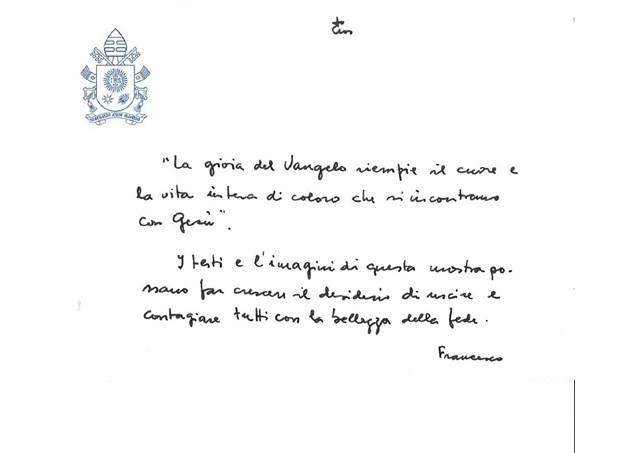 "La gioia del Vangelo riempie il cuore e
la vita intera di coloro che si incontrano
con Gesù".
I testi e l'imagini di questa mostra pos-
sano far crescere il desiderio di uscire e
contagiare tutti con la bellezza della fede.
Francesco